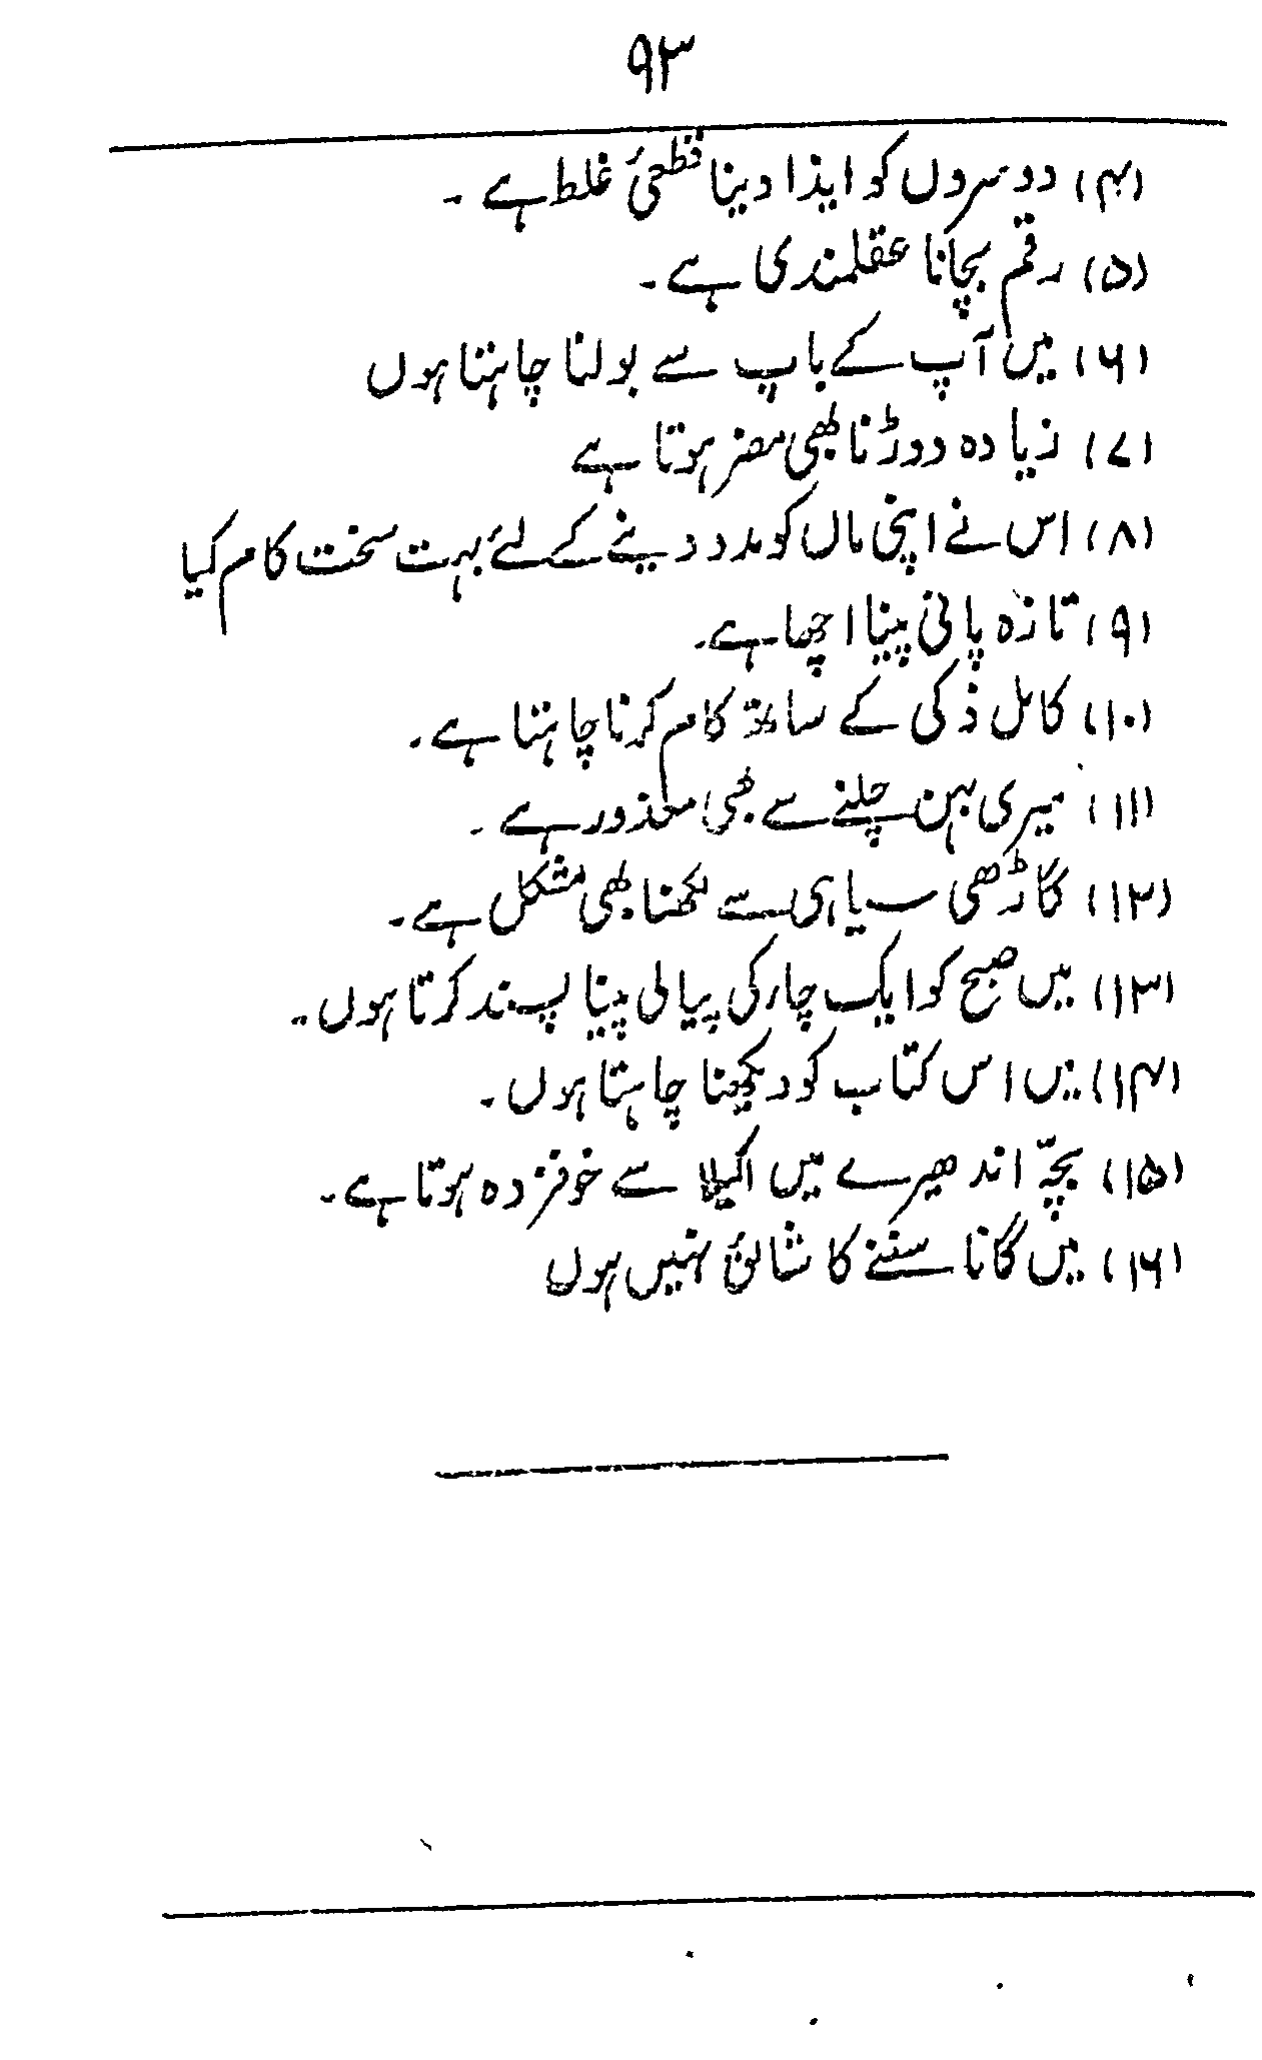 ۹۳
(۴) دوسروں کو ایذا دینا قطعئ غلط ہے ۔
(۵) رقم بچانا عقلمندی ہے ۔
(۶) میں آپ کے باپ سے بولنا چاہتا ہوں
(۷) زیادہ دوڑنا بھی مضر ہوتا ہے
(۸) اس نے اپنی ماں کو مدد دینے کے لئے بہت سخت کام کیا
(۹) تازہ پانی پینا اچھا ہے۔
(۱۰) کامل ذکی کے ساتھ کام کرنا چاہتا ہے ۔
(۱۱) میری بہن چلنے سے بھی معذور ہے ۔
(۱۲) گاڑھی سیاہی سے لکھنا بھی مشکل ہے ۔
(۱۳) میں صبح کو ایک چاء کی پیالی پینا پسند کرتا ہوں ۔
(۱۴) میں اس کتاب کو دیکھنا چاہتا ہوں ۔
(۱۵) بچّہ اندھیرے میں اکیلا سے خوفزدہ ہوتا ہے ۔
(۱۶) میں گانا سننے کا شائق نہیں ہوں